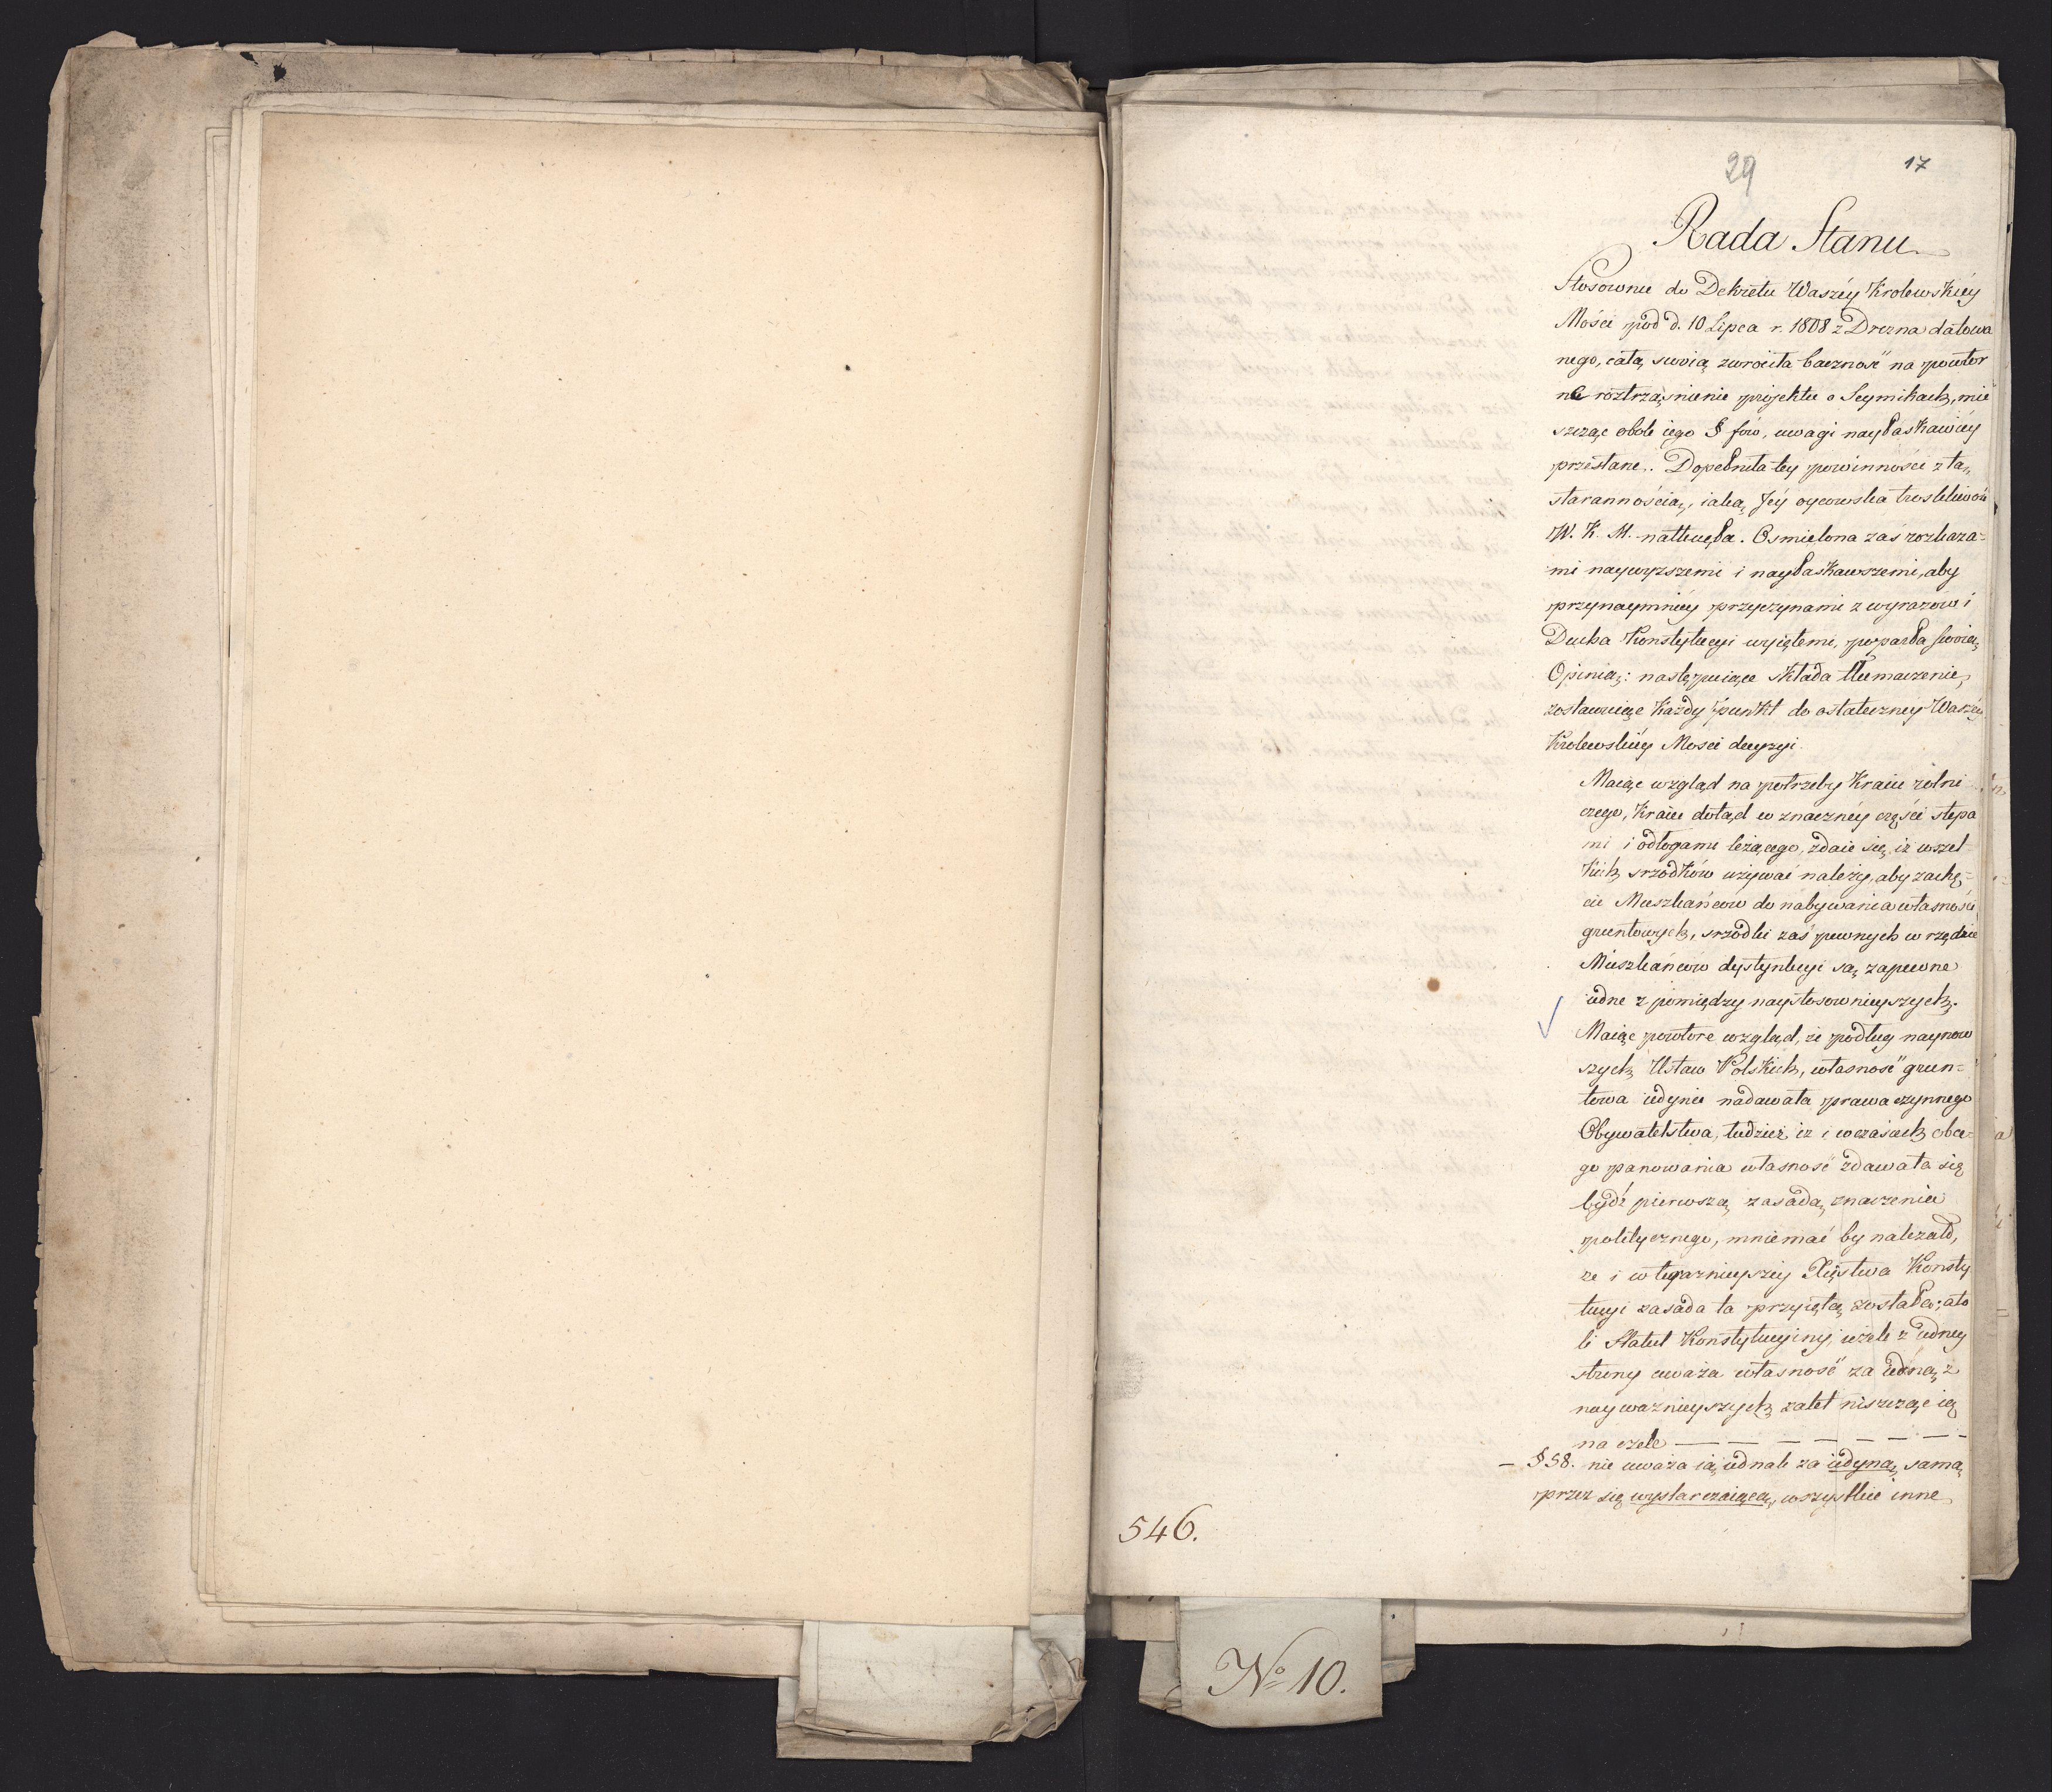 29
17
Rada Stanu
Stosownie do Dekretu Waszéy Krolewskiéy
Mości pod d. 10 Lipca r. 1808 z Drezna datowa
nego, całą swoią zwrociła baczność na powtor
ne roztrząśnienie projektu o Seymikach, mie
szcząc obok iego § fów, uwagi nayłaskawiéy
przesłane. Dopełniła tey powinności z tą
starannością, iaką Jéy oycowska troskliwość
W. K. M. natchnęła. Osmielona zaś rozkaza=
mi naywyzszemi i nayłaskawszemi, aby
przynaymniéy przyczynami z wyrazow i
Ducha Konstytucyi wziętemi, poparła swoią
Opinią: następuiące składa tłumaczenie,
zostawuiąc każdy punkt do ostateczney Waszéy
Krolewskiéy Mosci decyzyi.
Maiąc wzgląd na potrzeby Kraiu rolni
czego, Kraiu dotąd w znacznéy części stepa
mi i odłogami leżącego, zdaie się, iż wszel
kich srzodków używać należy, aby zachę=
cić Mieszkańcow do nabywania własności
gruntowych, srzodki zaś pewnych w rzędzie
Mieszkańcow dystynkcyi są zapewne
iedne z pomiędzy naystosownieyszych.
Maiąc powtore wzgląd, że podług naynow
szych Ustaw Polskich, własność grun=
towa iedynie nadawała prawa czynnego
Obywatelstwa, tudzież iż i w czasach obce=
go panowania własność zdawała się
bydź pierwszą zasadą znaczenia
politycznego, mniemać by należało,
że i w teyraznieyszey Xięstwa Konsty
tucyi zasada ta przyiętą została; ato
li Statut Konstytucyiny, ieżeli z iedney
strony uważa własność za iedną z
nayważnieyszych zalet niszcząc ią
na czele — — — — — — —
— § 58. nie uważa ią iednak za iedyną, samą
przez się wystarczaiącą, wszystkie inne
546.
No 10.